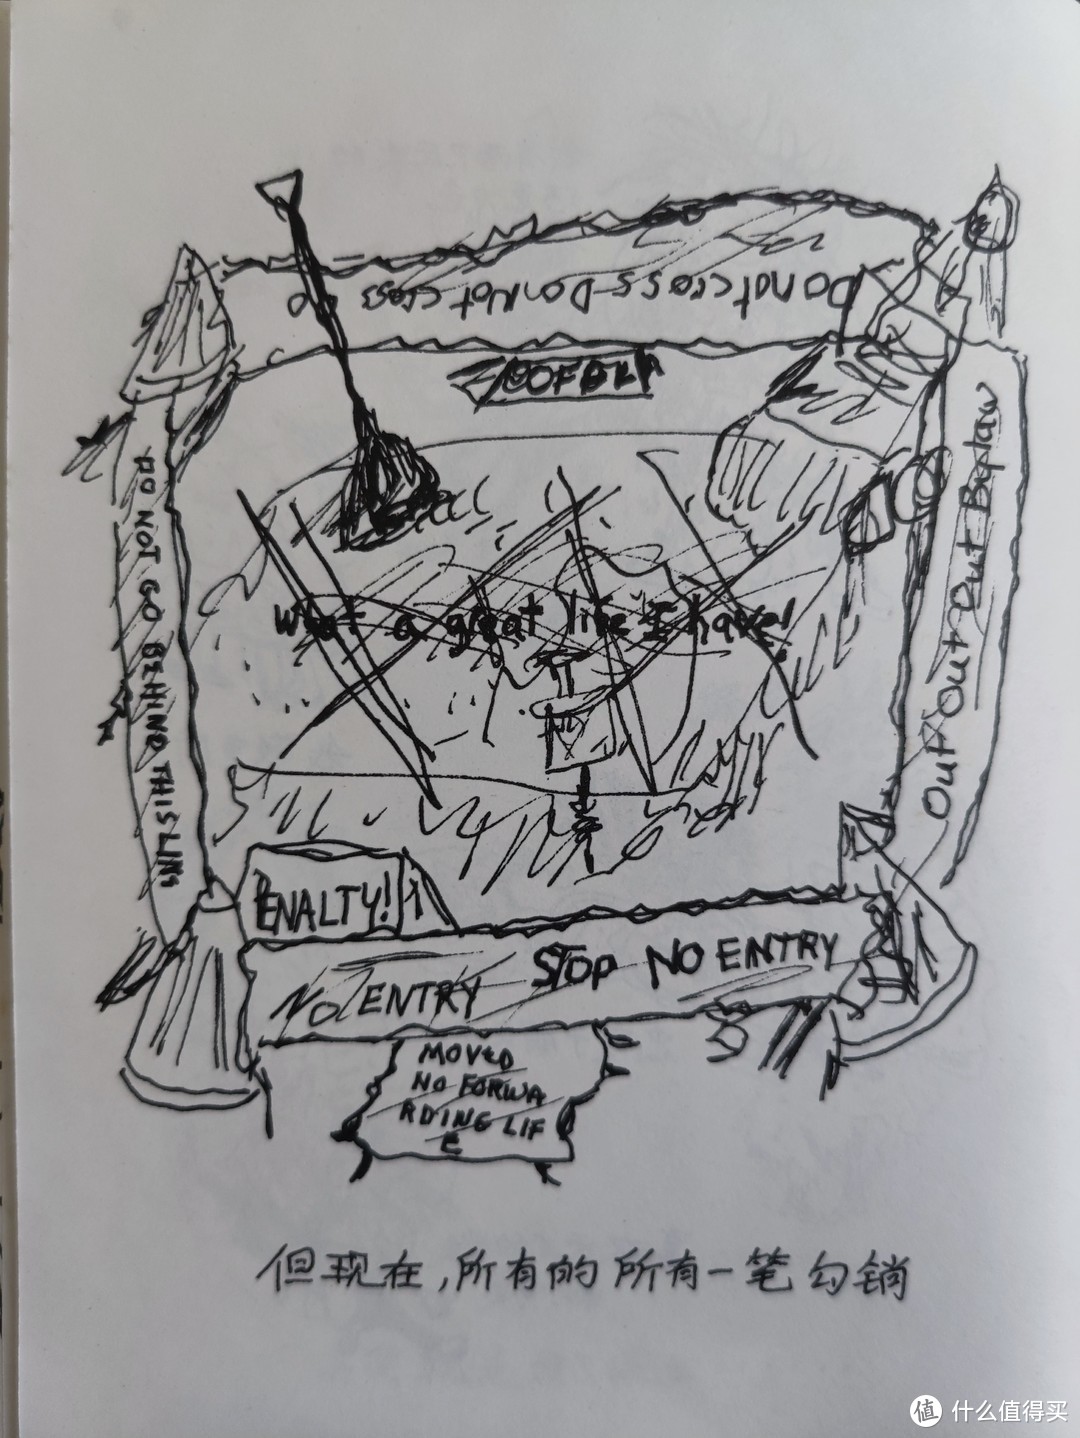 Do not cross Do Not Cross DO
DO NOT GO BEHIND THIS LINE
Out Out Out Bylaw
What a great life I have!
PENALTY!
No ENTRY STOP NO ENTRY
MOVED
NO FORWA
RDING LIF
E
但现在,所有的所有一笔勾销
值 什么值得买